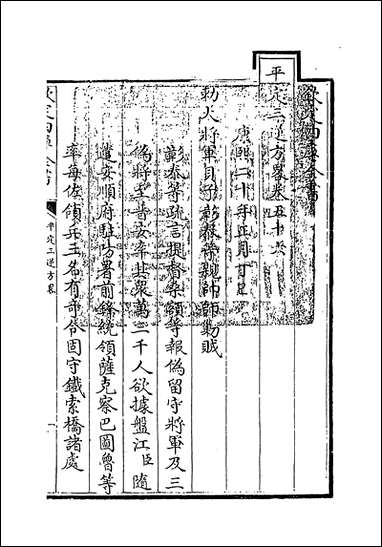 欽定四庫全書
平定三逆方畧卷五十六
康熙二十年正月甲子
勅大將軍貝子彰泰等親帥師勦賊
彰泰等疏言提督桑額等報偽留守將軍及三
偽將至普安率其衆萬二千人欲據盤江臣隨
遣安順府駐防署前鋒統領薩克察巴圖魯等
率每佐領兵三名有奇令固守鐵索橋諸處
欽定四庫全書
平定三逆方畧
一
平